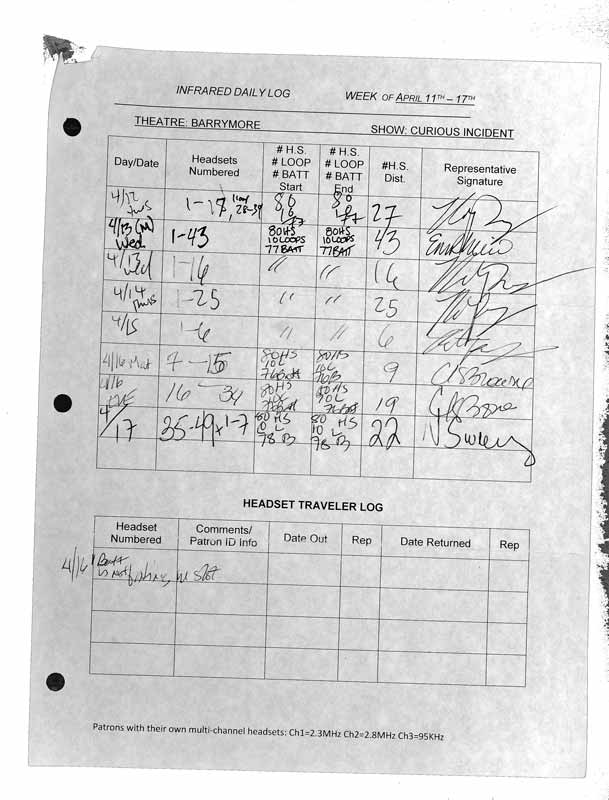 INFRARED DAILY LOG WEEK OF APRIL 11TH – 17TH
THEATRE: BARRYMORE SHOW: CURIOUS INCIDENT
Day/Date Headsets Numbered # H.S. # LOOP # BATT Start # H.S. # LOOP # BATT End #H.S. Dist. Representative Signature
4/12 27
4/13 (M) Wed 1-43 80HS 10LOOPS 77BATT 80HS 10LOOPS 77BATT 43
4/13 Wed 1-16 " " 16
4/14 Thurs 1-25 " " 25
4/15 1-6 " " 6
4/16 Mat 7-15 80HS 10L 76Batt 80HS 10L 76B 9
4/16 EVE 16-34 80HS 10L 76Batt 80HS 10L 76Batt 19
4/17 35-49 + 1-7 80 HS 10 L 78 B 80 HS 10 L 78 B 22
HEADSET TRAVELER LOG
Headset Numbered Comments/ Patron ID Info Date Out Rep Date Returned Rep
4/16 1 Batt is not in slot
Patrons with their own multi-channel headsets: Ch1=2.3MHz Ch2=2.8MHz Ch3=95KHz